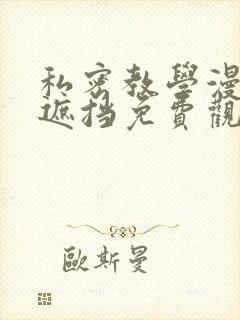 私密教學漫
遮挡免費觀
歐斯曼